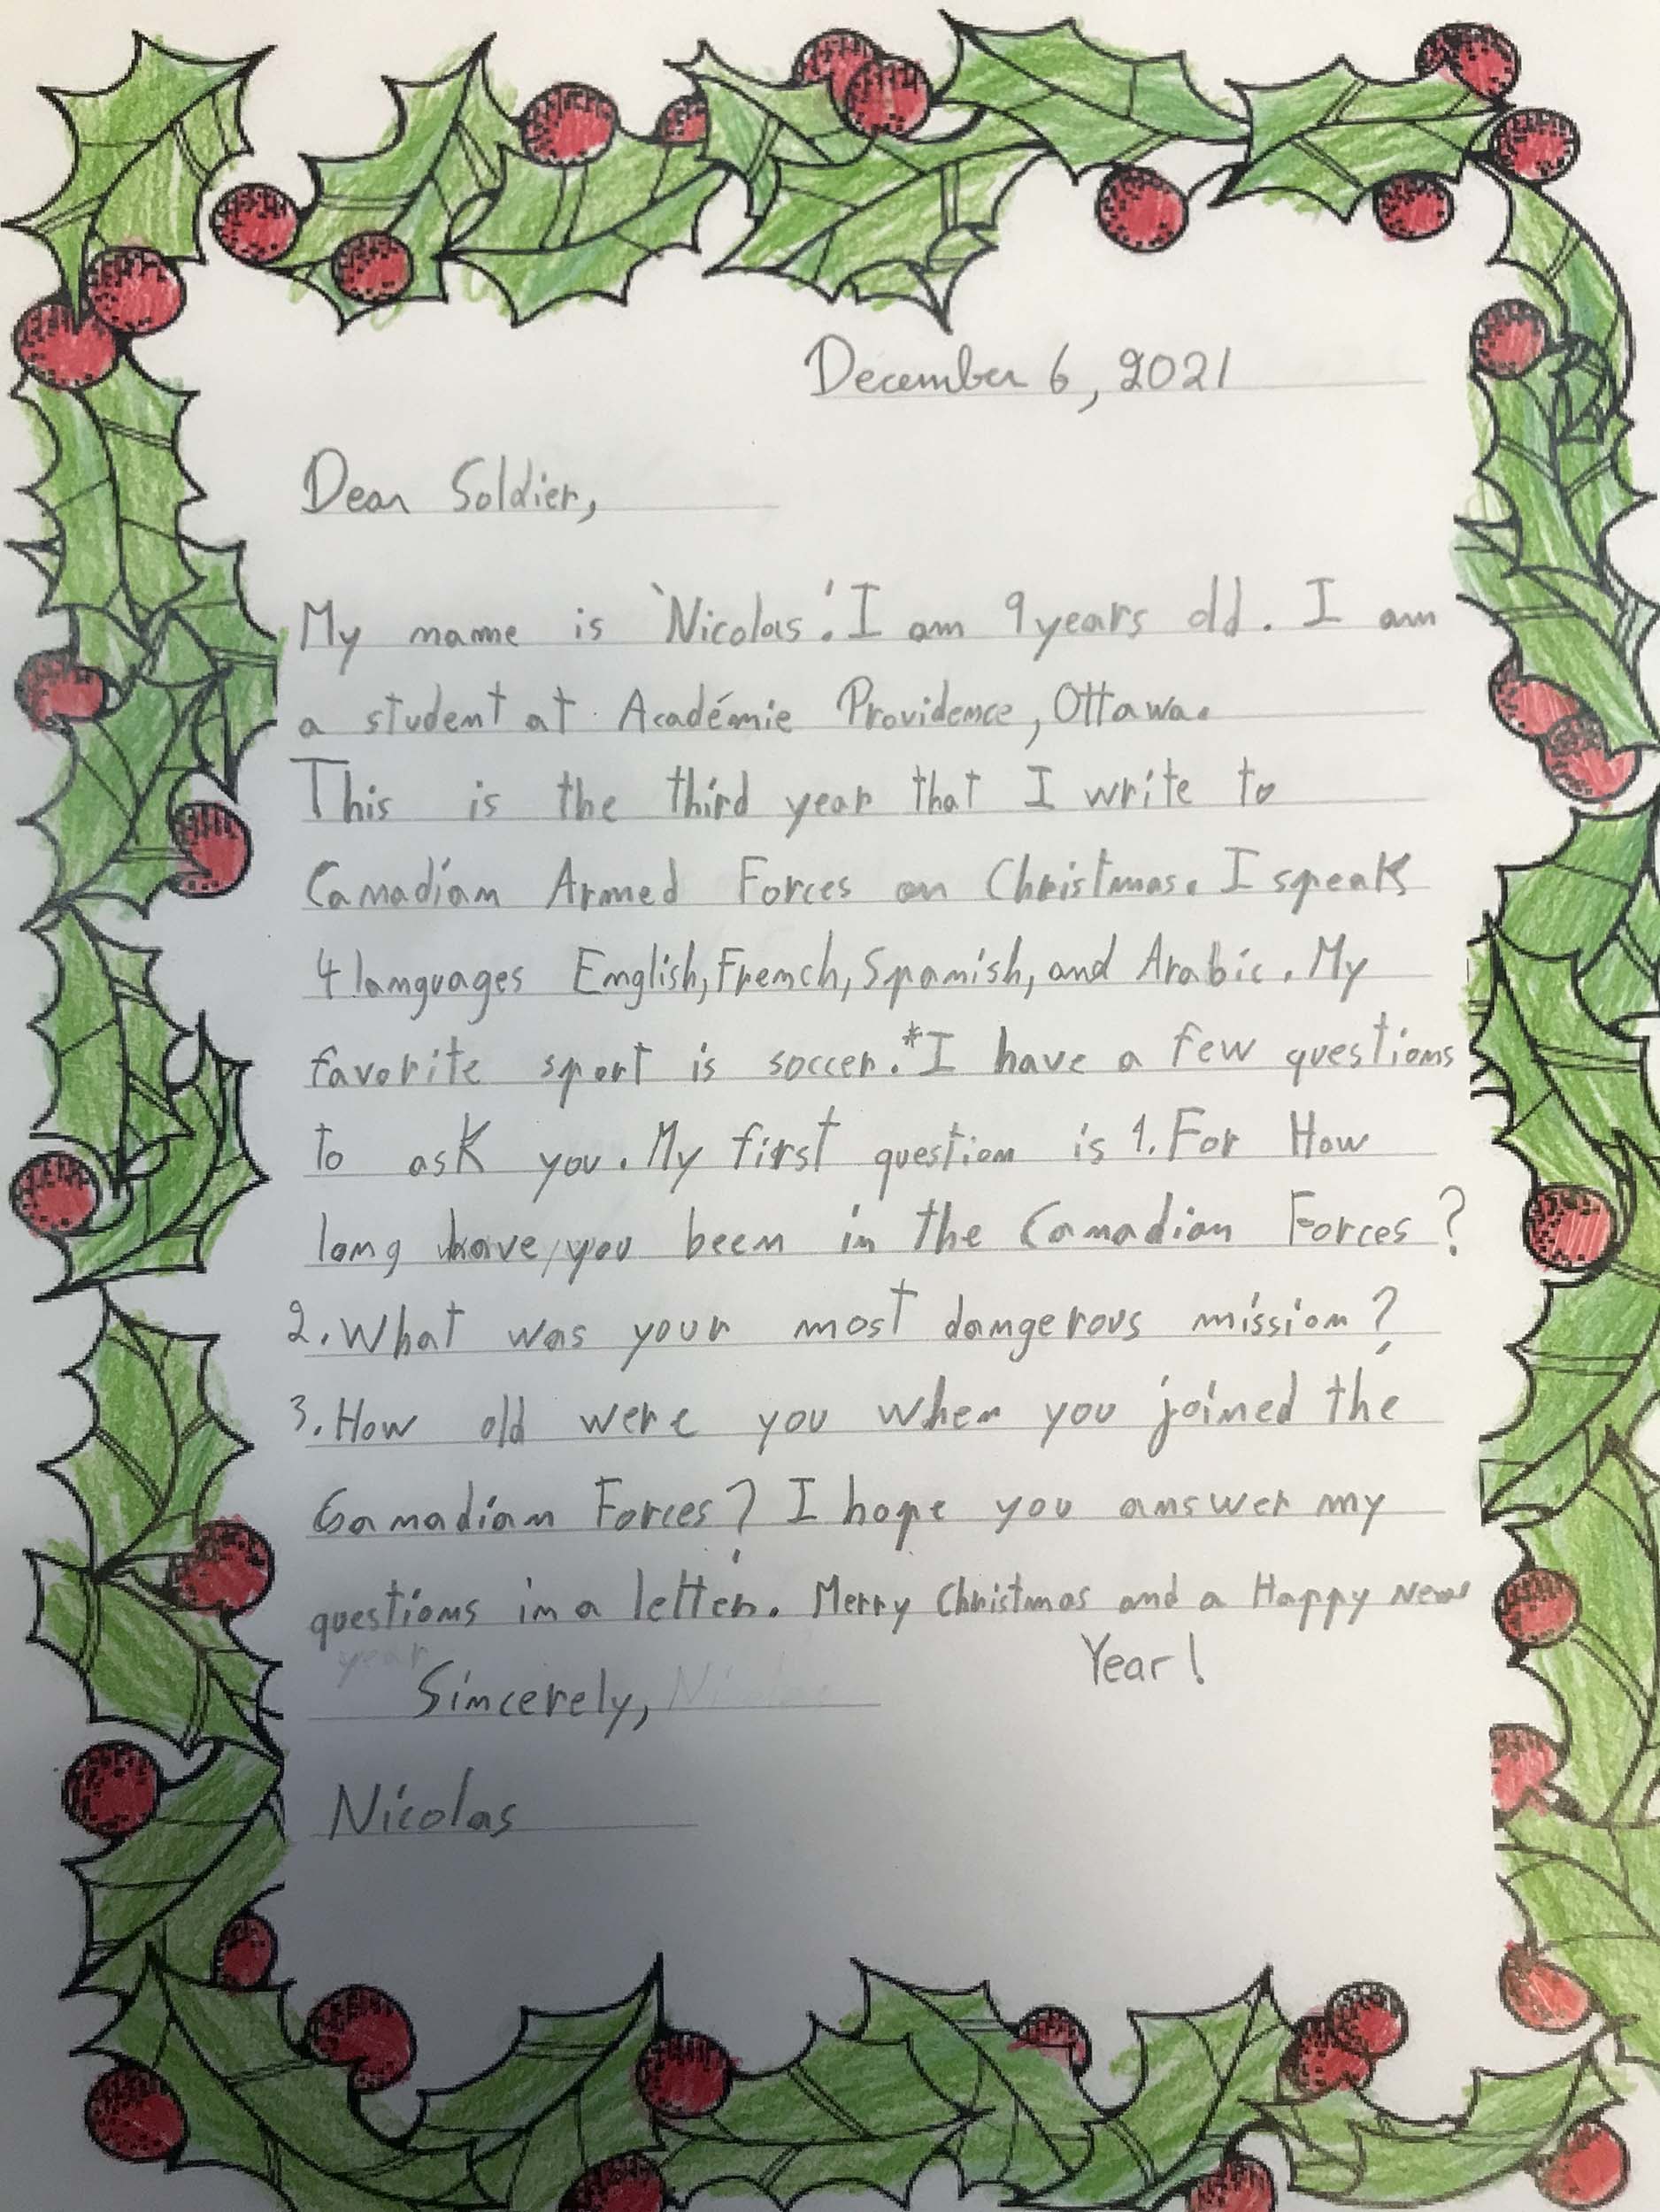 December 6, 2021
Dear Soldier,
My name is `Nicolas'. I am 9 years old. I am
a student at Académie Providence, Ottawa.
This is the third year that I write to
Canadian Armed Forces on Christmas. I speak
4 languages English, French, Spanish, and Arabic. My
favorite sport is soccer.* I have a few questions
to ask you. My first question is 1. For How
long have you been in the Canadian Forces?
2. What was your most dangerous mission?
3. How old were you when you joined the
Canadian Forces? I hope you answer my
questions in a letter. Merry Christmas and a Happy New
Year!
year
Sincerely,
Nicolas